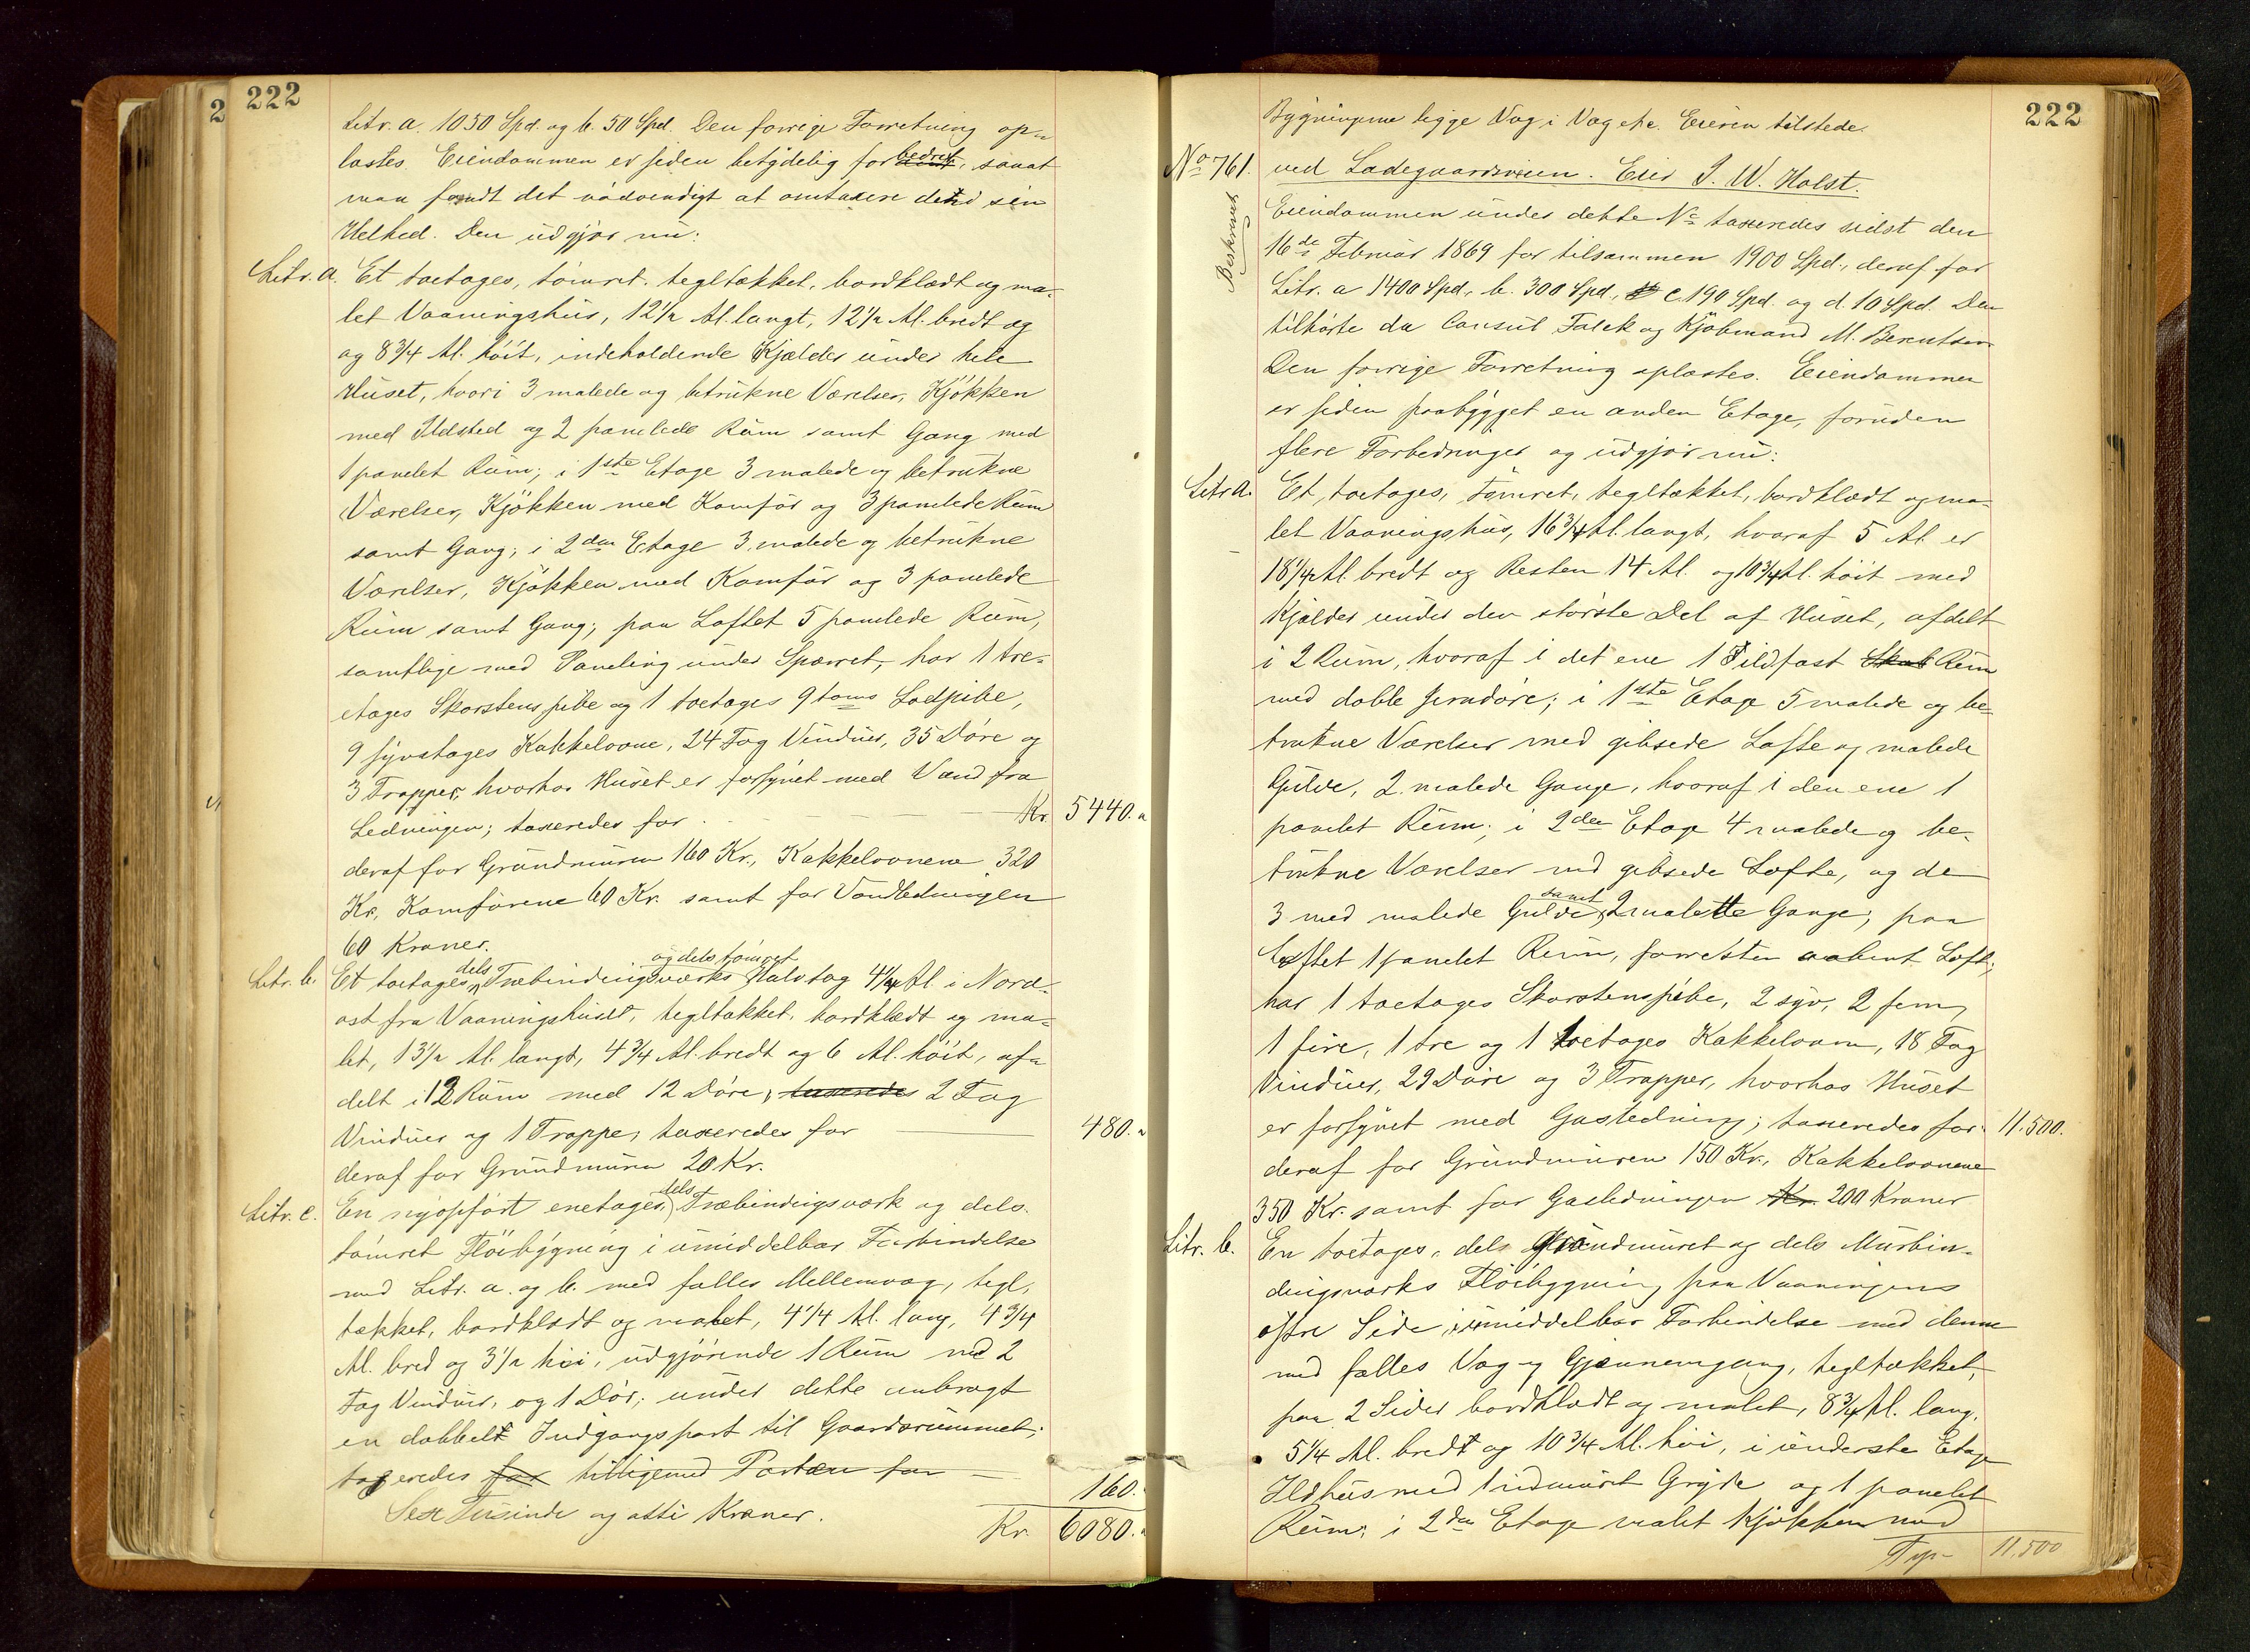 222
Litr. a. 1050 Spd. og b. 50 Spd. Den forrige Forretning op-
lastes. Eiendommen er siden betydelig forbedret, saaat
man fandt det nødvendigt at omtaxere den i sin
Helhed. Den udgjør nu:
Litr. a. Et toetages, tømret, tegltækket, bordklædt og ma-
let Vaaningshus, 12 1/2 Al. langt, 12 1/2 Al. bredt og
og 8 3/4 Al. høit, indeholdende Kjælder under hele
Huset, hvori 3 malede og betrukne Værelser, Kjøkken
med Ildsted og 2 panelede Rum samt Gang med
1 panelet Rum; i 1ste Etage 3 malede og betrukne
Værelser, Kjøkken med Komfør og 3 panelede Rum
samt Gang; i 2den Etage 3 malede og betrukne
Værelser, Kjøkken med Komfør og 3 panelede
Rum samt Gang; paa Loftet 5 panelede Rum,
samtlige med Paneling under Spærret, har 1 tre-
etages Skorstenspibe og 1 toetages 9 toms Lodpibe,
9 syvetages Kakkelovne, 24 Fag Vinduer, 35 Døre og
3 Trapper, hvorhos Huset er forsynet med Vand fra
Ledningen; taxeredes for Kr. 5440.
deraf for Grundmuren 160 Kr., Kakkelovnene 320
Kr., Komførene 60 Kr. samt for Vandledningen
60 Kroner.
Litr. b. Et toetages dels Træbindingsværks og dels tømret Halvtag 4 1/4 Al. i Nord-
ost fra Vaaningshuset, tegltækket, bordklædt og ma-
let, 13 1/2 Al. langt, 4 3/4 Al. bredt og 6 Al. høit, af-
delt i 12 Rum med 12 Døre, taxeredes 2 Fag
Vinduer og 1 Trappe; taxeredes for 480.
deraf for Grundmuren 20 Kr.
Litr. c. En nyopført enetages, dels Træbindingsværk og dels
tømret Fløibygning i umiddelbar Forbindelse
med Litr. a. og b. med fælles Mellemvæg, tegl-
tækket, bordklædt og malet, 4 1/4 Al. lang, 4 3/4
Al. bred og 3 1/2 høi, udgjørende 1 Rum med 2
Fag Vinduer, og 1 Dør; under dette anbragt
en dobbelt Indgangsport til Gaardsrummet;
taxeredes for tilligemed Porten for 160.
Sex Tusinde og otti Kroner. Kr. 6080.
222
Bygningerne ligge Væg i Væg etc. Eieren tilstede.
No 761. ved Ladegaardsveien. Eier J. W. Holst.
Beskrevet
Eiendommen under dette No taxeredes sidst den
16de Februar 1869 for tilsammen 1900 Spd., deraf for
Litr. a 1400 Spd., b. 300 Spd., c. 190 Spd. og d. 10 Spd. Den
tilhørte da Consul Falck og Kjøbmand M. Berentsen
Den forrige Forretning oplastes. Eiendommen
er siden paabygget en anden Etage, foruden
flere Forbedringer og udgjør nu:
Litr a. Et toetages, tømret, tegltækket, bordklædt og ma-
let Vaaningshus, 16 3/4 Al. langt, hvoraf 5 Al. er
18 1/4 Al. bredt og Resten 14 Al. og 10 3/4 Al. høit med
Kjælder under den største Del af Huset, afdelt
i 2 Rum, hvoraf i det ene 1 Ildfast Skab Rum
med doble Jerndøre; i 1ste Etage 5 malede og be-
trukne Værelser med gibsede Lofte og malede
Gulve, 2 malede Gange, hvoraf i den ene 1
panelet Rum; i 2den Etage 4 malede og be-
trukne Værelser med gibsede Lofte, og de
3 med malede Gulve, samt 2 malette Gange; paa
Loftet 1 panelet Rum, forresten aabent Loft;
har 1 toetages Skorstenspibe, 2 syv, 2 fem,
1 fire, 1 tre og 1 toetages Kakkelovn, 18 Fag
Vinduer, 29 Døre og 3 Trapper, hvorhos Huset
er forsynet med Gasledning; taxeredes for 11.500.
deraf for Grundmuren 150 Kr., Kakkelovnene
350 Kr. samt for Gasledningen Kr. 200 Kroner
Litr. b. En toetages, dels Grundmuret og dels Murbin-
dingsværks Fløibygning paa Vaaningens
østre Side, i umiddelbar Forbindelse med denne
med fælles Væg og Gjennemgang, tegltækket,
paa 2 Sider bordklædt og malet, 8 3/4 Al. lang,
5 1/4 Al. bredt og 10 3/4 Al. høi, i underste Etage
Ildhus med 1 indmuret Gryde og 1 panelet
Rum; i 2den Etage malet Kjøkken med
11,500